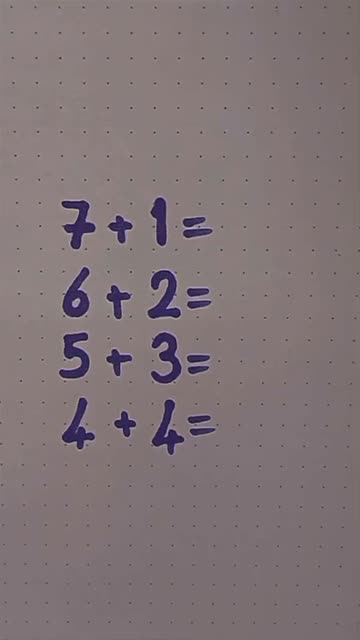 7 + 1 =
6 + 2 =
5 + 3 =
4 + 4 =